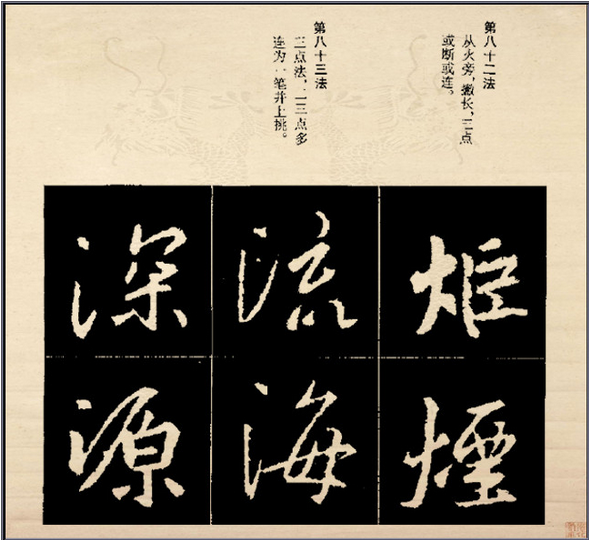 第八十二法
从火旁,撇长,三点
或断或连。
第八十三法
三点法,二三点多
连为一笔并上挑。
炬
煙
流
海
深
源